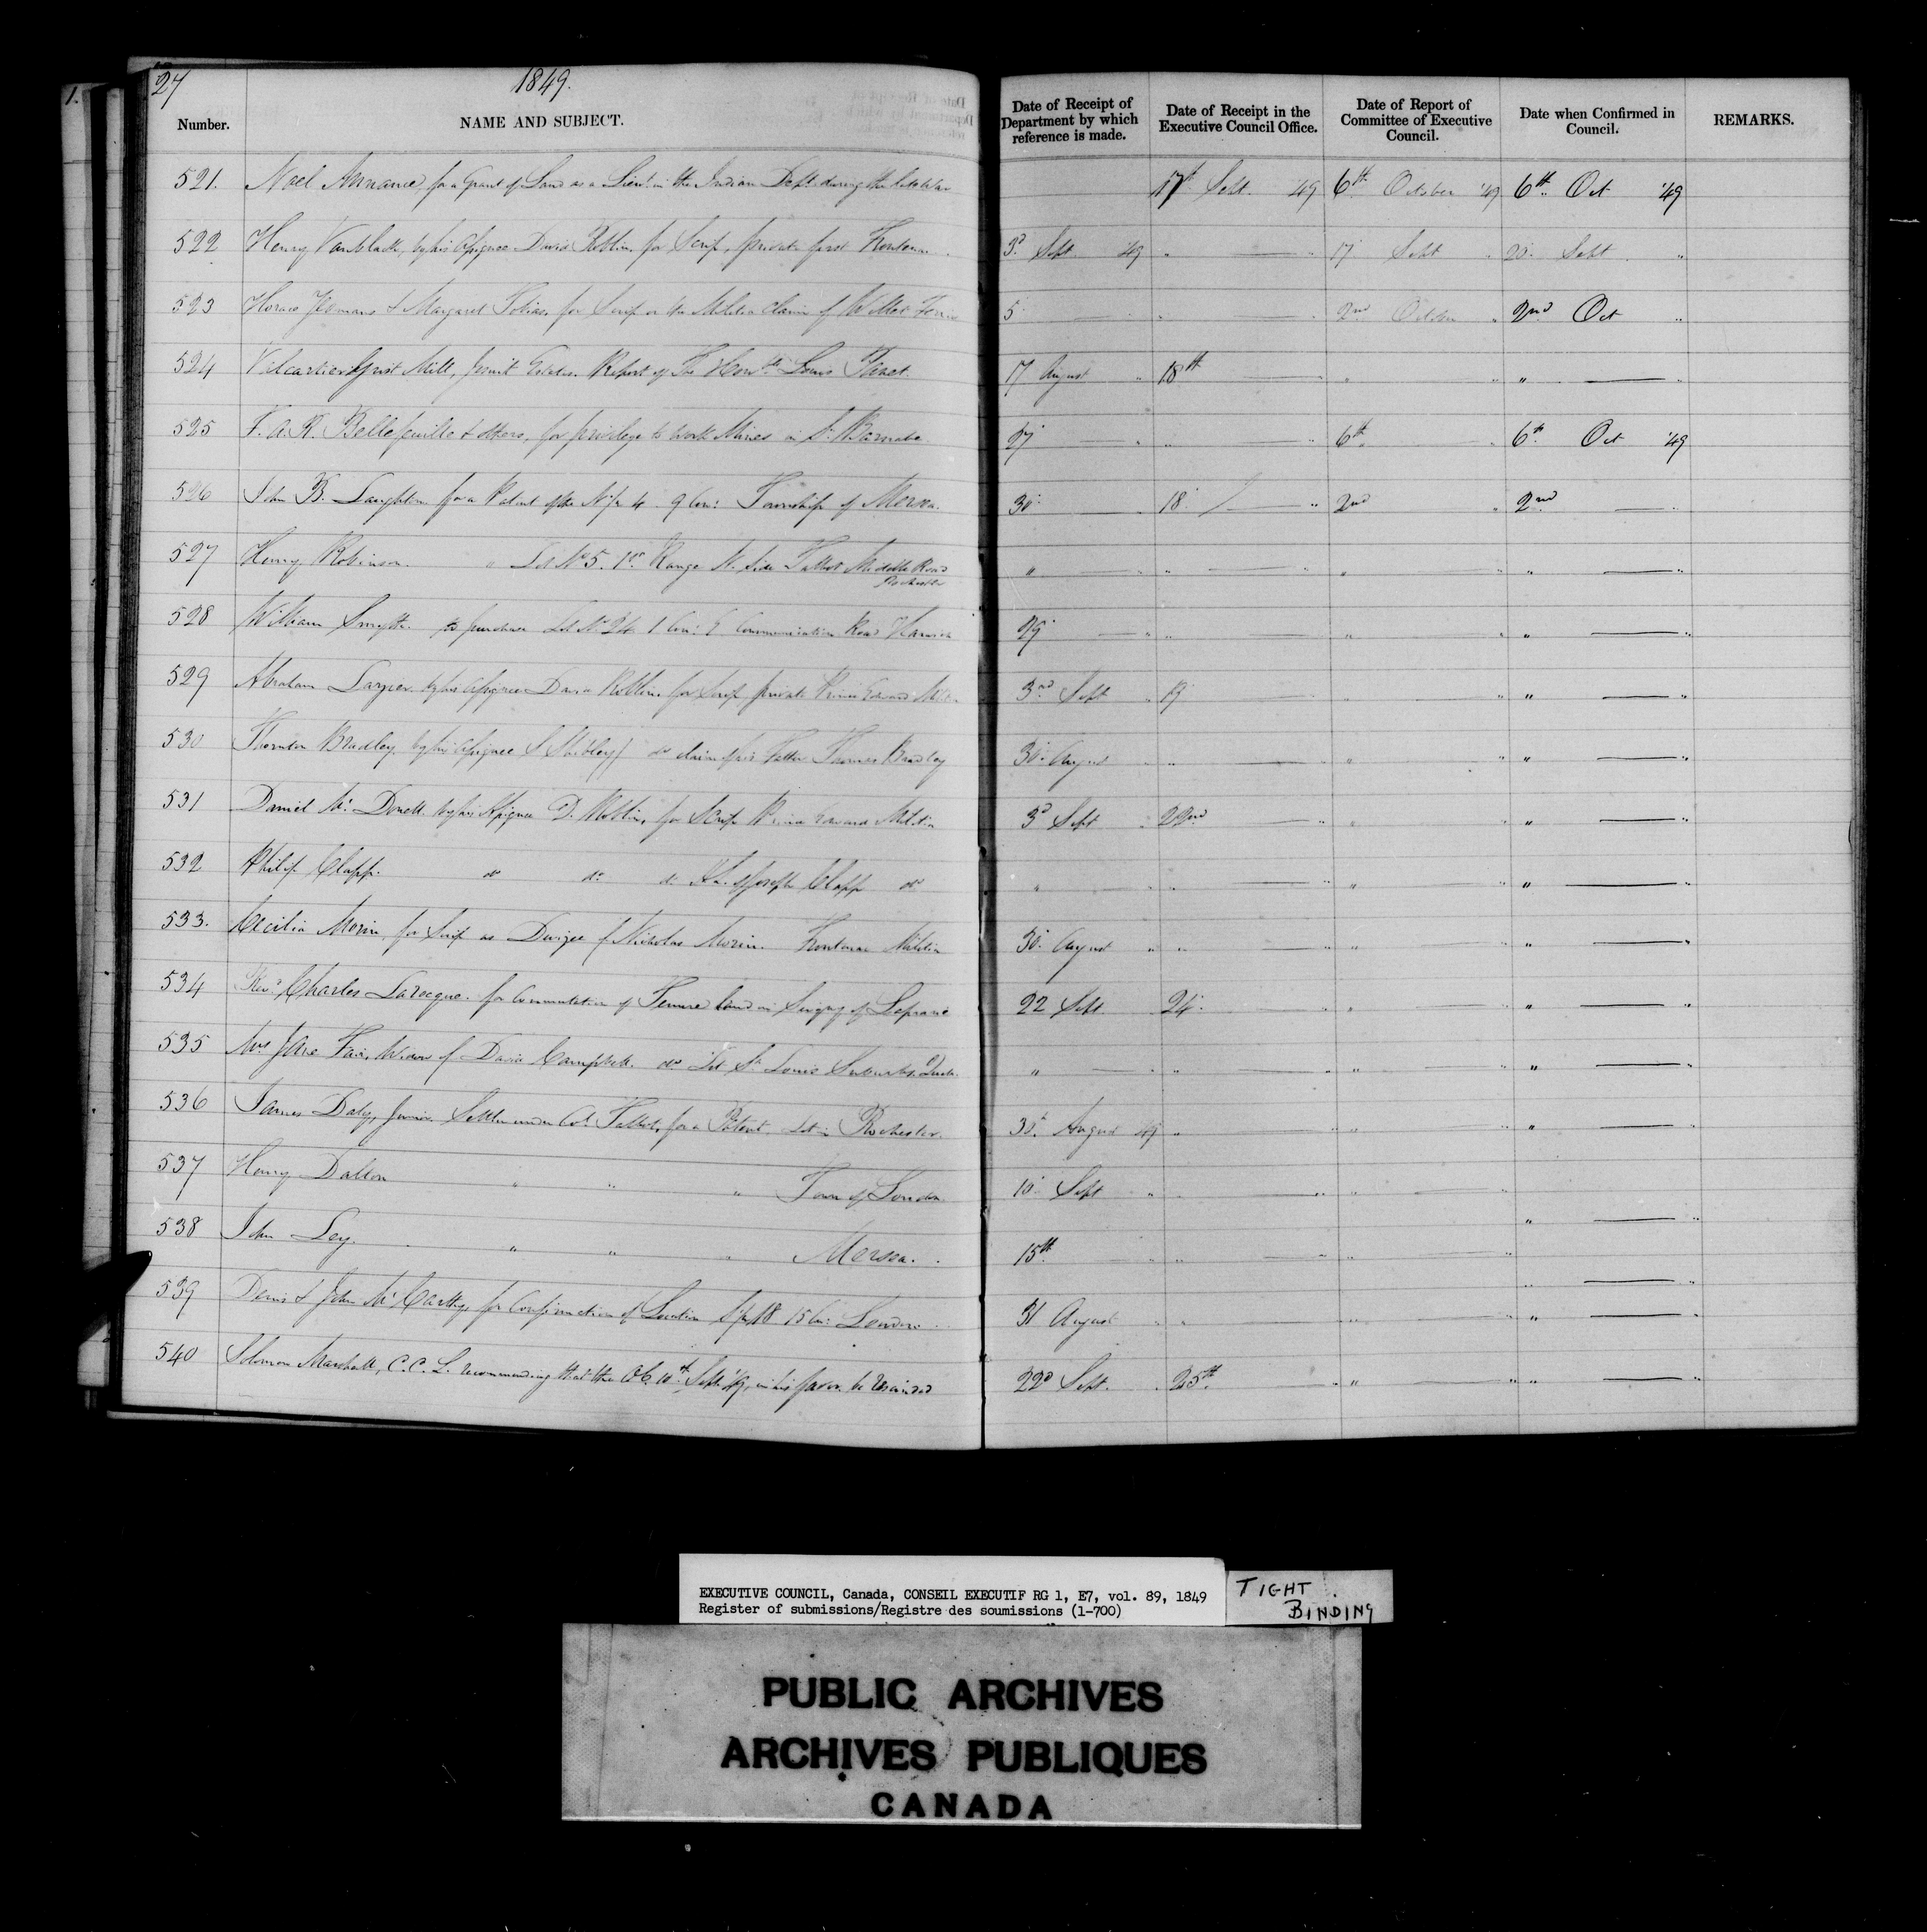 27
1849.
Number. NAME AND SUBJECT. Date of Receipt of Department by which reference is made. Date of Receipt in the Executive Council Office. Date of Report of Committee of Executive Council. Date when Confirmed in Council. REMARKS.
521. Noel Annance, for a Grant of Land as a Lieut. in the Indian Dept. during the late War 17th Sept. '49 6th October '49 6th Oct '49
522 Henry Vanblack, by his Assignee David Roblin, for Scrip, private first Frontenac 3d Sept '49 " — " 17 Sept " 20 Sept "
523 Horace Yeomans & Margaret Tobias, for Scrip on the Militia claim of 5 — " — " 2nd October " 2nd Oct "
524 Valcartier Grist Mill, Jesuit Estates. Report of The Honble. Louis 17 August " 18th — " " — " " — "
525 F. A. R. Bellefeuille & others, for privilege to work Mines in St. Barnabe 27 — " " — " 6th — " 6th Oct '49
526 John B. Laughton for a Patent of the N½ 4. 9 Con: Township of Mersea. 30 — " 18 — " 2nd — " 2nd —
527 Henry Robinson. " Lot No 5. 1st Range N. Side Talbot Middle Road " — " " — " " — " " — "
Rochester
528 William Smyth. to purchase Lot No 24 1 Con: E Communication Road Harwich 29 — " " — " " — " " — "
529 Abraham by his Assignee David Roblin, for Scrip private Prince Edward 3rd Sept " 19 — " " — " " — "
530 Thornton Bradley, by his Assignee S Shibley do claim of his Father Thomas Bradley 30 August " — " " — " " — "
531 Daniel McDonell by his Assignee D. Roblin, for Scrip Prince Edward Militia 3d Sept " 22nd — " " — " " — "
532 Philip Clapp. do do do of Joseph Clapp do " " — " " — " " — "
533. Cecilia Morin, for Scrip as Devisee of Nicholas Morin. Frontenac Militia 30 August " " — " " — " " — "
534 Revd. Charles Larocque. for Commutation of Tenure land in Seigny of Leprarie 22 Sept 24 — " " — " " — "
535 Mrs Jane Fair, Widow of David Campbell. do Lot St. Louis Suburbs, Quebec " — " " — " " — " " — "
536 James Daly, Junior. Settler under Col. Talbot, for a Patent Lot in Rochester. 30 August 49 " — " " — " " — "
537 Henry Dalton " " " Town of London. 10 Sept " " — " " — "
538 John Ley. " " " Mersea. 15th — " " — " " — " " — "
539 Denis & John McCarthy, for Confirmation of Location 18 15 Con: London 31 August " " — " " — " " — "
540 Solomon Marshall, C. C. L. recommending that the O.C. 10th Sept '49, in his favor be rescinded 22d Sept. " 25th — " " — " " — "
EXECUTIVE COUNCIL, Canada, CONSEIL EXECUTIF RG 1, E7, vol. 89, 1849
Register of submissions/Registre des soumissions (1-700)
TIGHT
BINDING
PUBLIC ARCHIVES
ARCHIVES PUBLIQUES
CANADA